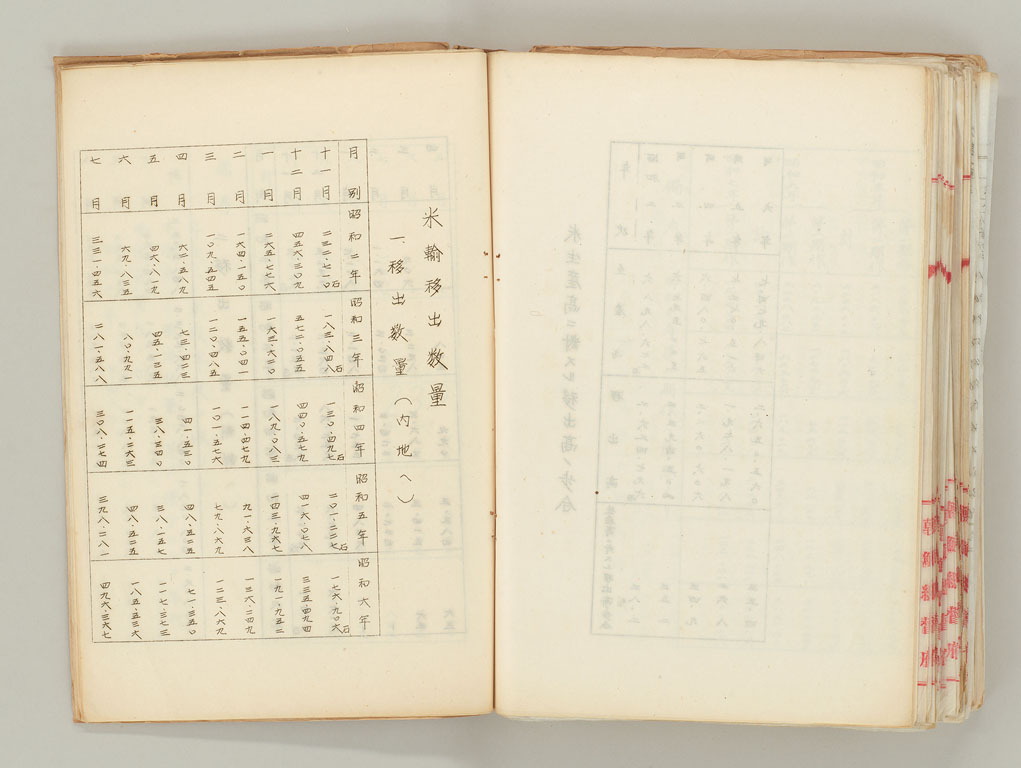 米輸移出数量
一、移出数量(内地へ)
月別 昭和二年 昭和三年 昭和四年 昭和五年 昭和六年
十一月 二三二・七一〇石 一八三・八四八石 一三〇・四九七石 二〇一・二二七石 一七六・九〇六石
十二月 四五六・三〇九 五七二・〇五五 四四〇・五七九 四一六・〇七八 三三五・四九四
一月 二六五・七七六 一六三・六三〇 一八九・〇八三 一四三・九六七 一九一・九五二
二月 一六四・一五〇 一五五・〇四一 一一四・四七九 九一・六三八 一三六・二四九
三月 一〇九・五四五 一二〇・四八五 一〇一・五七六 七九・八六九 一二三・八六九
四月 六二・五八九 七三・四二三 四一・五三〇 四八・五二五 七一・三五〇
五月 四六・八一九 四五・一三五 三八・三四〇 三八・一五七 一一七・三七三
六月 六九・八三五 八〇・九九一 一一五・二六三 四八・五二五 一八五・五三六
七月 三三一・四五六 二八一・五八八 三〇八・二七四 三九八・二八一 四九六・三六七